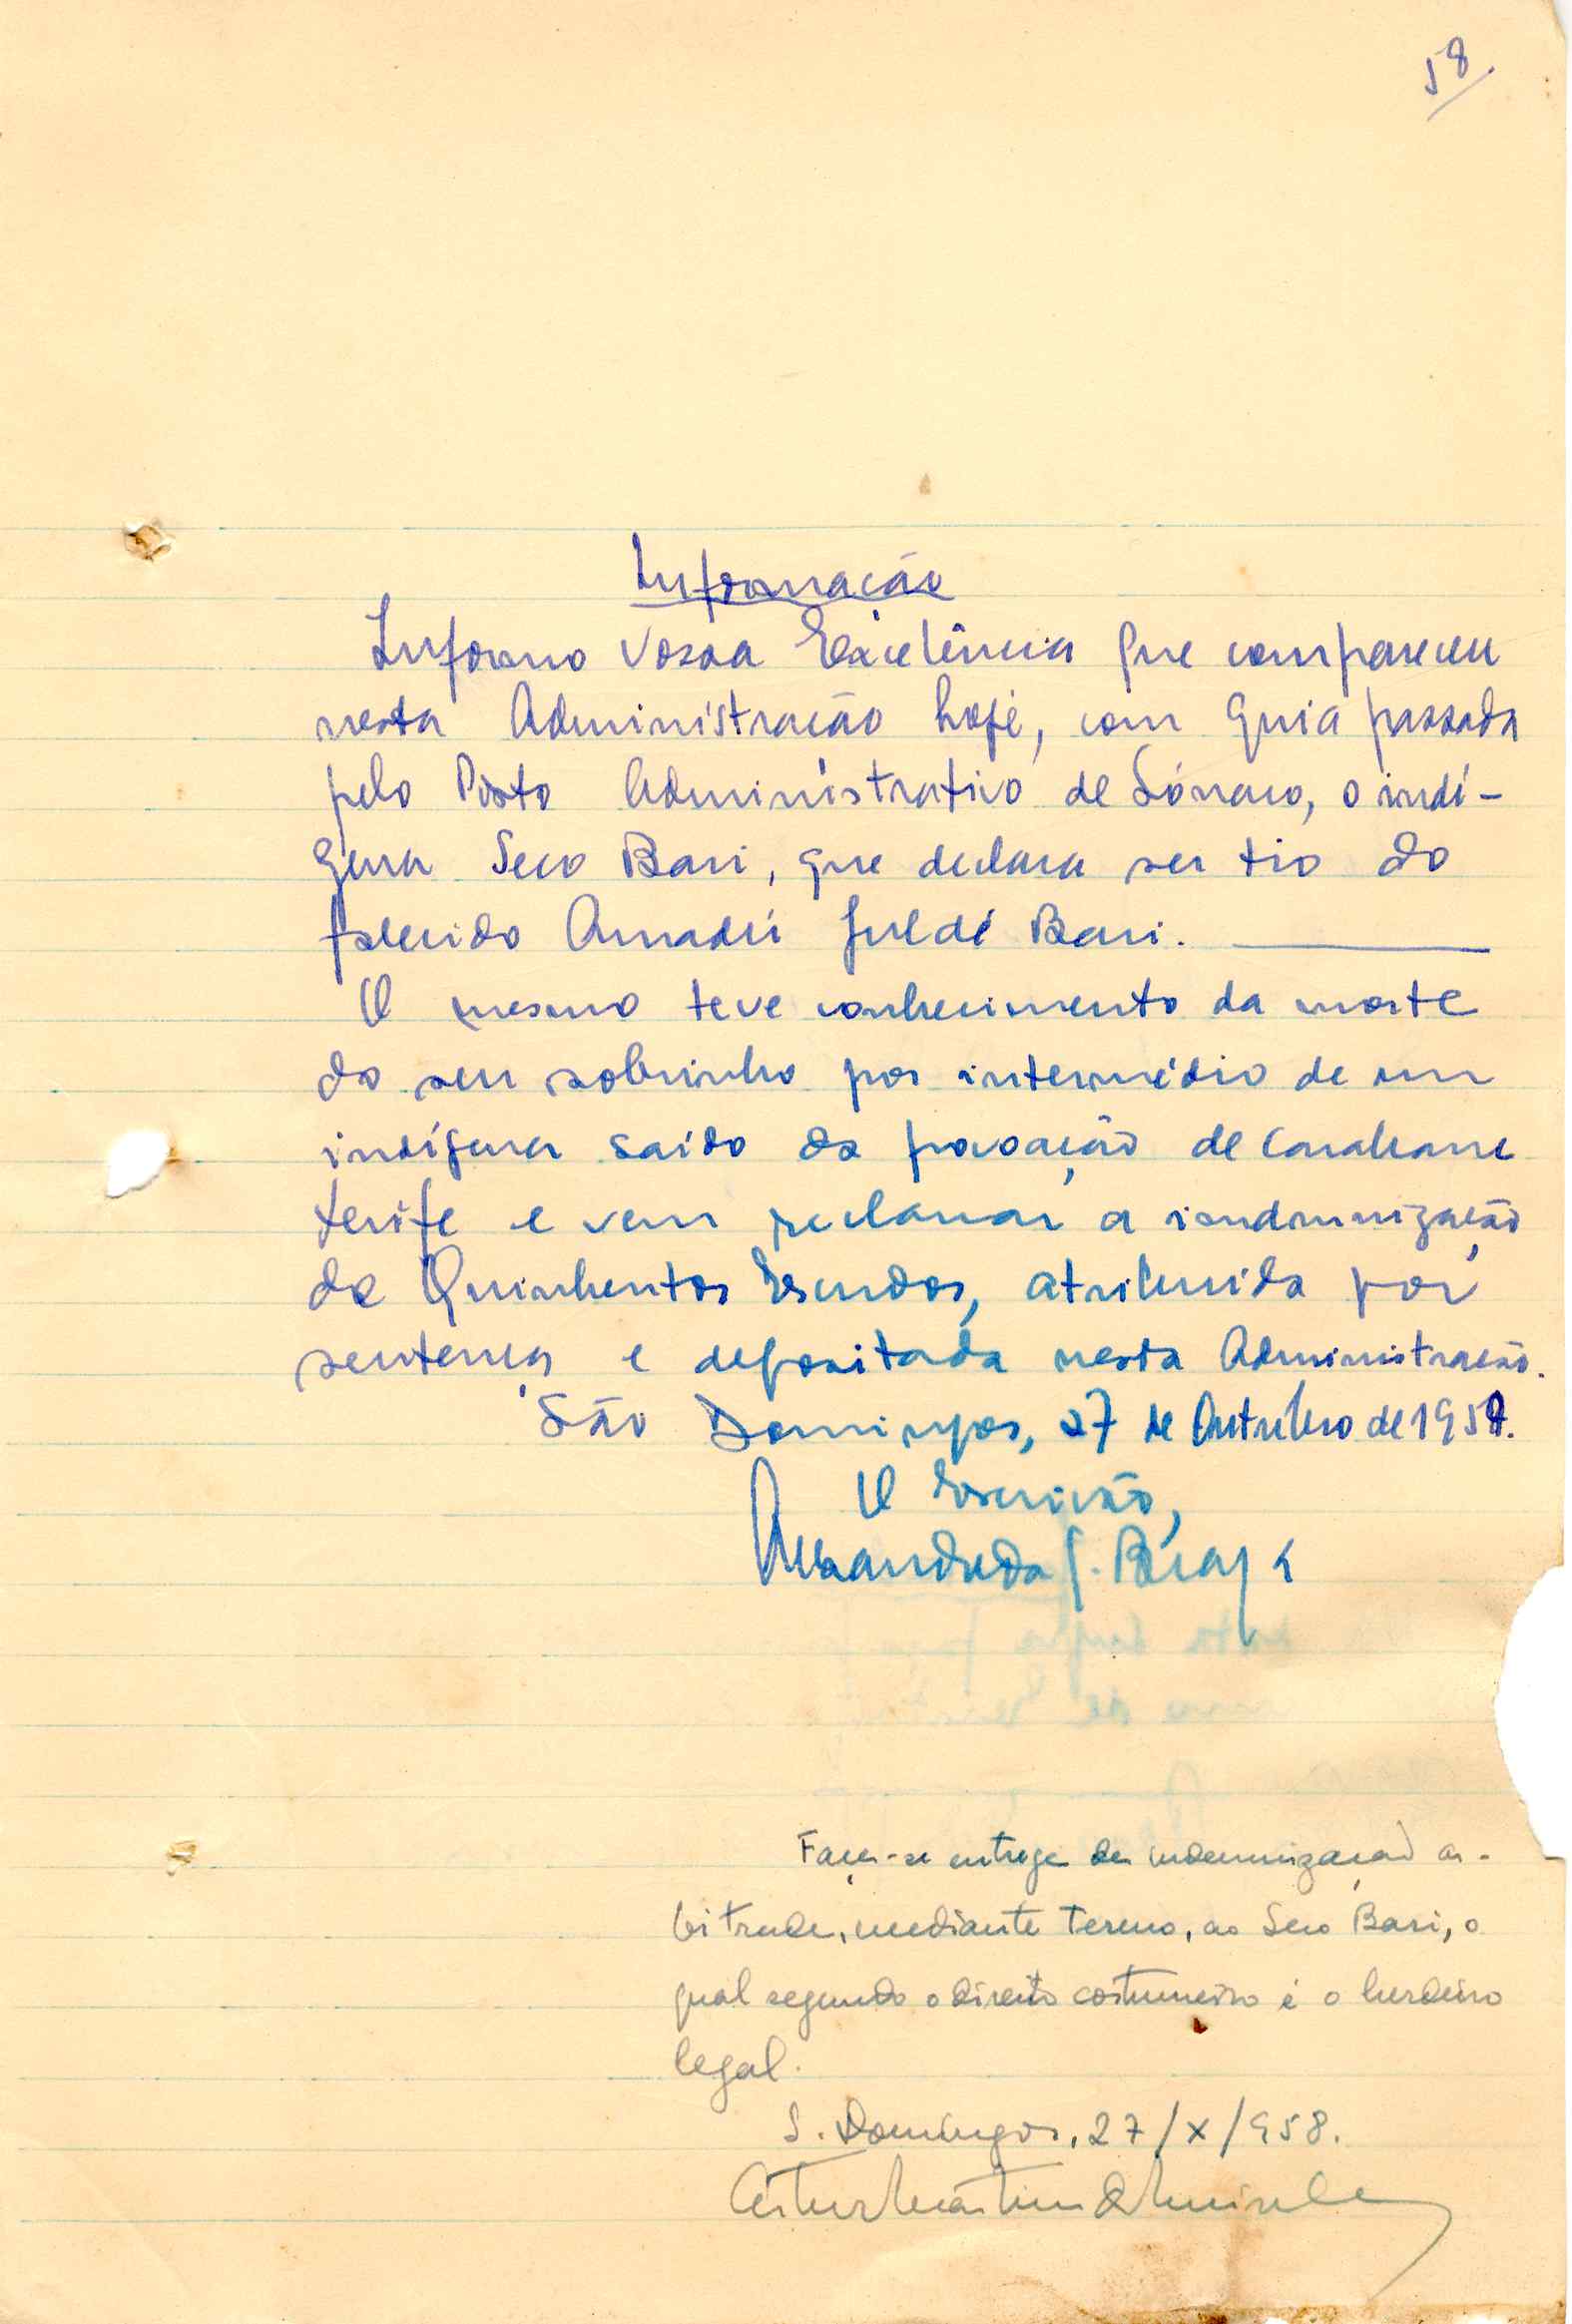 58.
Informação
Informo Vossa Excelência que compareceu
nesta Administração hoje, com guia passada
pelo Posto Administrativo de Sónaco, o indí-
gena Seco Bari, que declara ser tio do
falecido Amadú Juldé Bari.
O mesmo teve conhecimento da morte
do seu sobrinho por intermédio de um
indígena saído da povoação de
e vem reclamar a indmnização
de Quinhentos Escudos, atribuida por
sentença e depositada nesta Administração.
São Domingos, 27 de Outubro de 1958.
O Escrivão,
Faça-se entrega da indemnização ar-
bitrada, mediante termo, ao Seco Bari, o
qual segundo o direito costumeiro é o herdeiro
legal.
S. Domingos, 27/X/958.